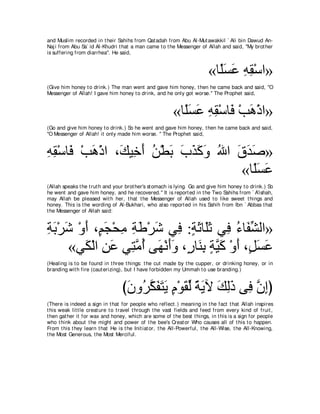 and Muslim recorded in their Sahihs from Qatadah from Abu Al-Mutawakkil `Ali bin Dawud An-
Naji from Abu Sa`id Al-Khudri that a man came to the Messenger of Allah and said, "My brother
is suffering from diarrhea''. He said,
«اسْقِهِ عَسَلًا»
(Give him honey to drink.) The man went and gave him honey, then he came back and said, "O
Messenger of Allah! I gave him honey to drink, and he only got worse.'' The Prophet said,
«اذْهَبْ فَاسْقِهِ عَسَلًا»
(Go and give him honey to drink.) So he went and gave him honey, then he came back and said,
"O Messenger of Allah! it only made him worse.'' The Prophet said,
«صَدَقَ اللهُ وَكَذَبَ بَطْنُ أَخِيكَ، اذْهَبْ فَاسْقِهِ
عَسَلًا»
(Allah speaks the truth and your brother's stomach is lying. Go and give him honey to drink.) So
he went and gave him honey, and he recovered.'' It is reported in the Two Sahihs from `A'ishah,
may Allah be pleased with her, that the Messenger of Allah used to like sweet things and
honey. This is the wording of Al-Bukhari, who also reported in his Sahih from Ibn `Abbas that
the Messenger of Allah said:
«الشِّفَاءُ فِي ثَلَاثَةٍ: فِي شَرْطَةِ مِحْجَمٍ، أَوْ شَرْبَةِ
عَسَلٍ، أَوْ كَيَّةٍ بِنَارٍ، وَأَنْهَى أُمَّتِي عَنِ الْكَيِّ»
(Healing is to be found in three things: the cut made by the cupper, or drinking honey, or in
branding with fire (cauterizing), but I have forbidden my Ummah to use branding.)
(إِنَّ فِى ذَلِكَ لَآيَةً لِّقَوْمٍ يَتَفَكَّرُونَ)
(There is indeed a sign in that for people who reflect.) meaning in the fact that Allah inspires
this weak little creature to travel through the vast fields and feed from every kind of fruit,
then gather it for wax and honey, which are some of the best things, in this is a sign for people
who think about the might and power of the bee's Creator Who causes all of this to happen.
From this they learn that He is the Initiator, the All-Powerful, the All-Wise, the All-Knowing,
the Most Generous, the Most Merciful.